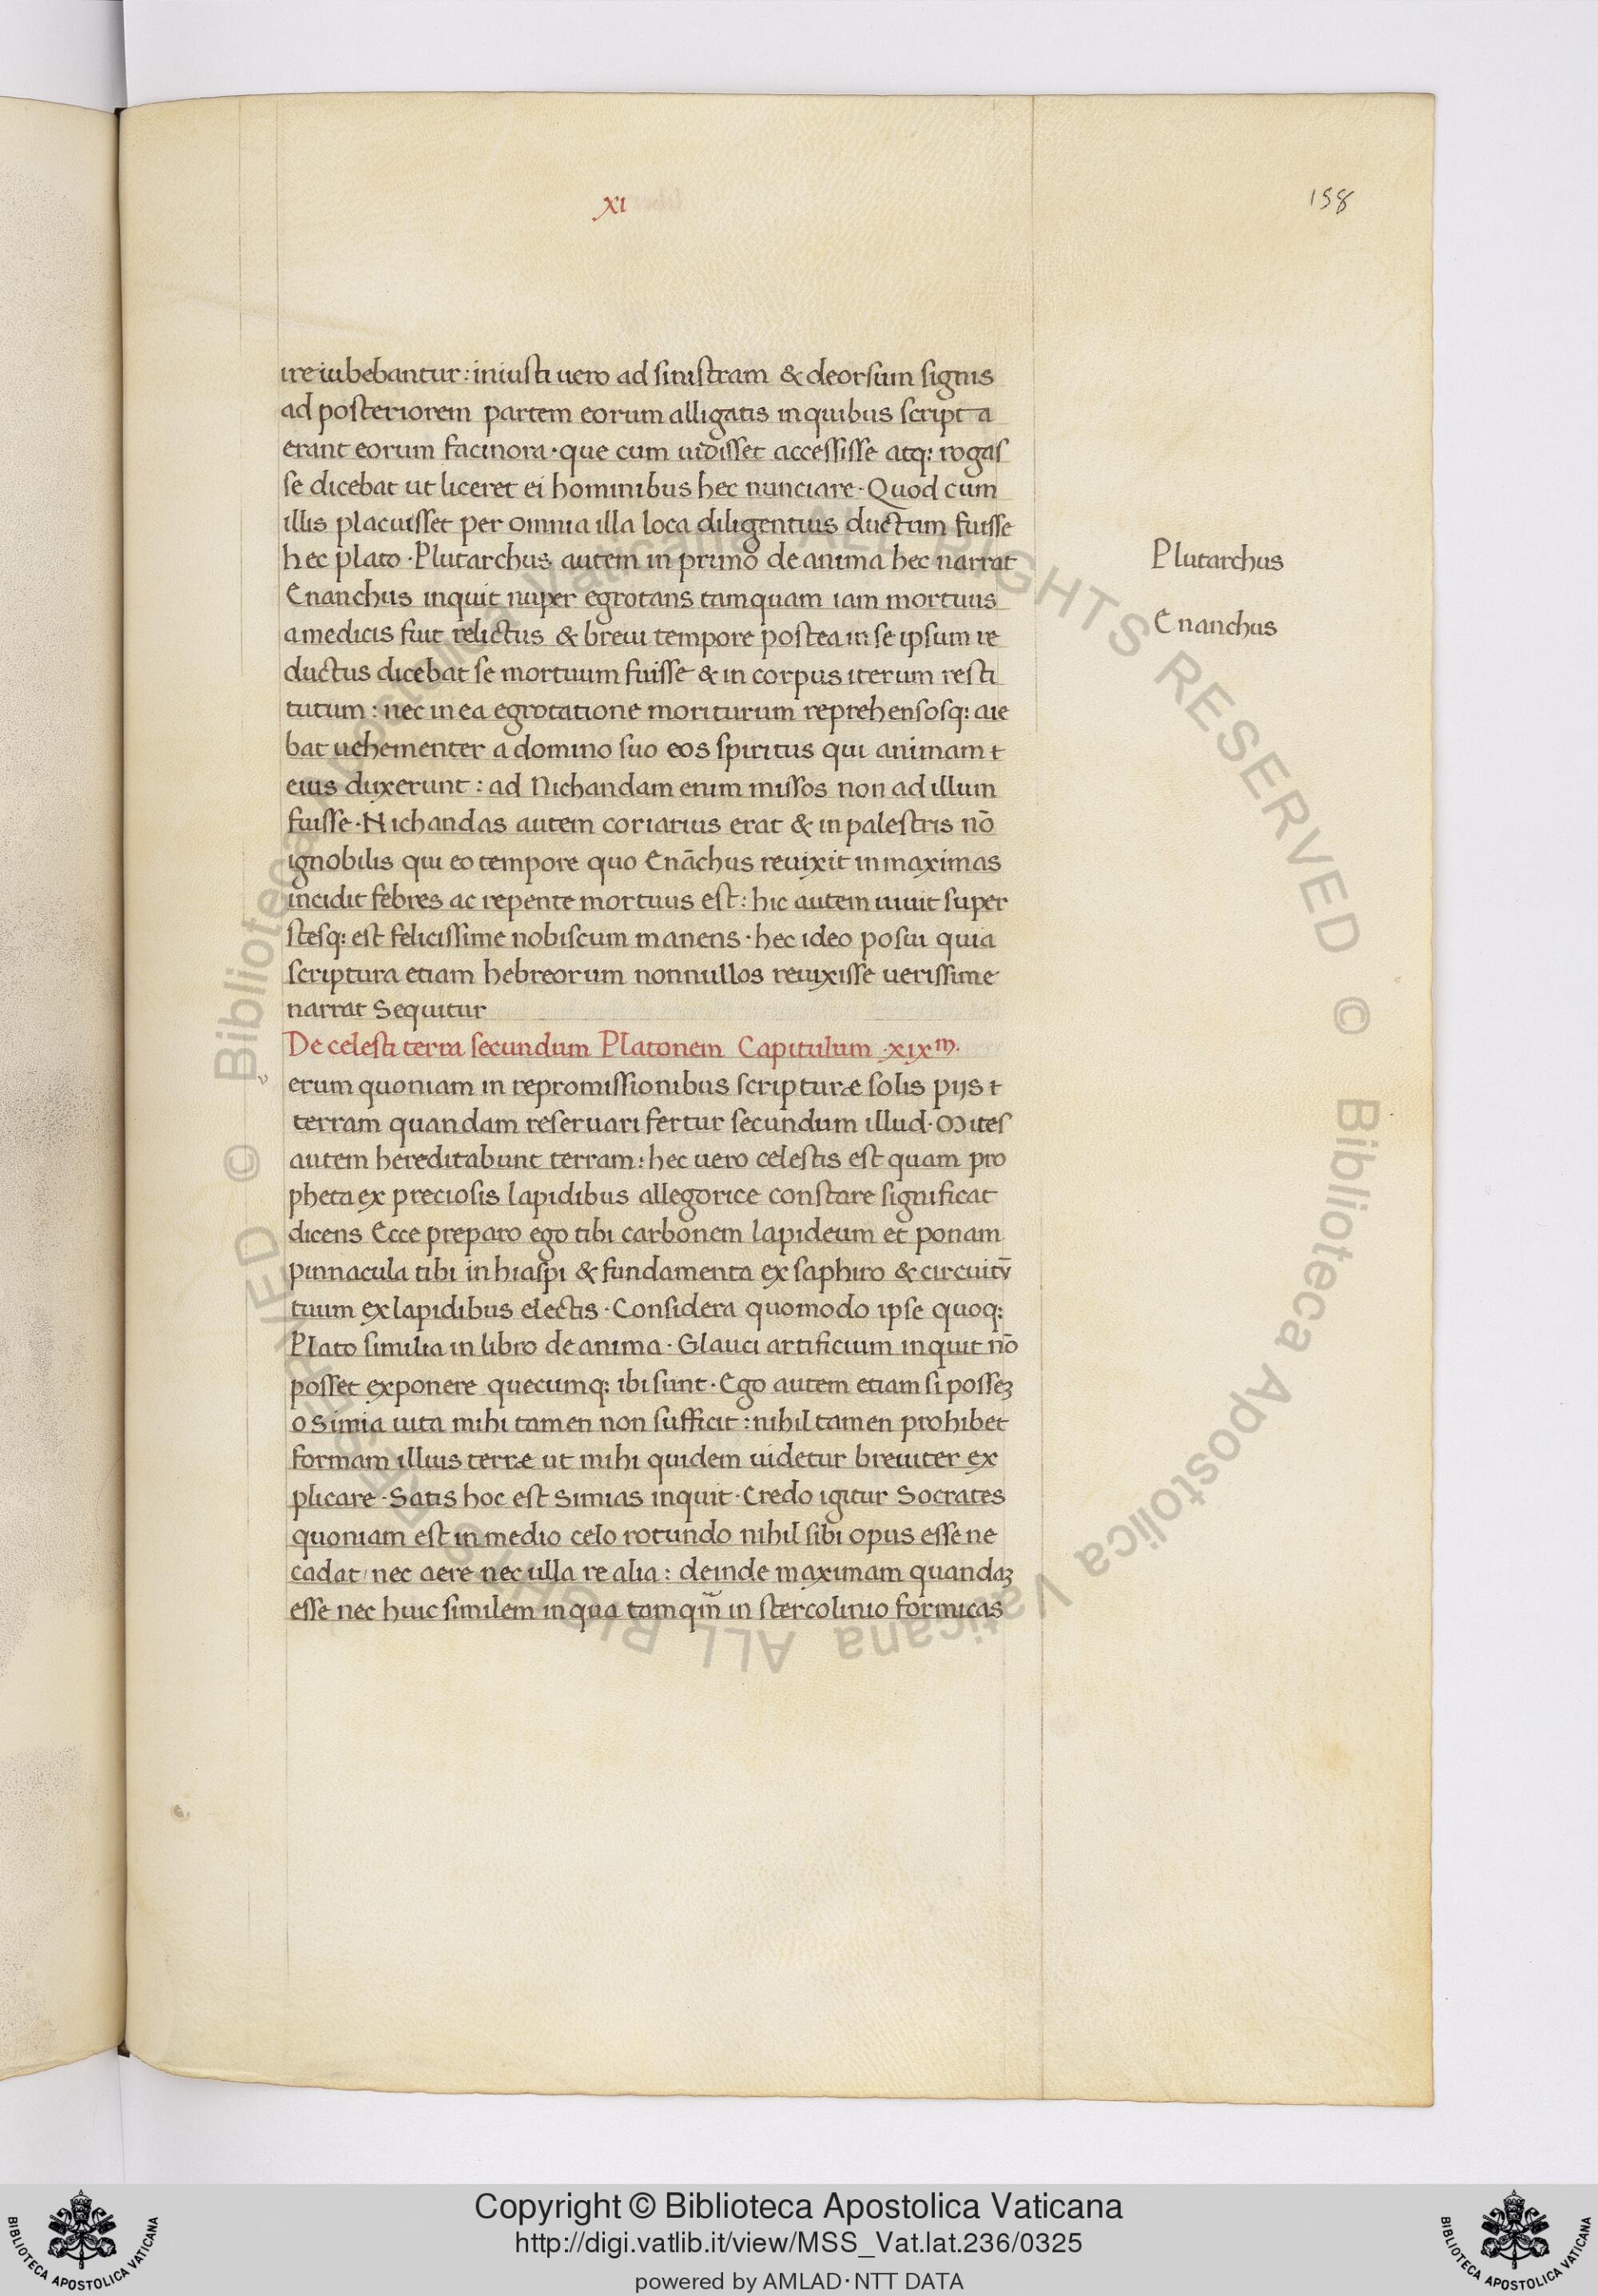 xi
158
ire iubebantur: iniusti uero ad sinistram & deorsum signis
ad posteriorem partem eorum alligatis in quibus scripta
erant eorum facinora· que cum uidisset accessisse atq: rogas
se dicebat ut liceret ei hominibus hec nunciare· Quod cum
illis placuisset per omnia illa loca diligentius ductum fuisse
hec plato· Plutarchus autem in primo de anima hec narrat
Plutarchus
Enanchus inquit nuper egrotans tamquam iam mortuus
Enanchus
a medicis fuit relictus & breui tempore postea in se ipsum re
ductus dicebat se mortuum fuisse & in corpus iterum resti
tutum: nec in ea egrotatione moriturum reprehensosq: aie
bat uehementer a domino suo eos spiritus qui animam
eius duxerunt: ad Nichandam enim missos non ad illum
fuisse· Nichandas autem coriarius erat & in palestris nō
ignobilis qui eo tempore quo Enāchus reuixit in maximas
incidit febres ac repente mortuus est: hic autem uiuit super
stesq: est felicissime nobiscum manens· hec ideo posui quia
scriptura etiam hebreorum nonnullos reuixisse uerissime
narrat Sequitur
De celesti terra secundum Platonem Capitulum ·xixm·
erum quoniam in repromissionibus scripturæ solis pijs
terram quandam reseruari fertur secundum illud· Mites
autem hereditabunt terram: hec uero celestis est quam pro
pheta ex preciosis lapidibus allegorice constare significat
dicens Ecce preparo ego tibi carbonem lapideum et ponam
pinnacula tibi in hiaspi & fundamenta ex saphiro & circuitū
tuum ex lapidibus electis· Considera quomodo ipse quoq:
Plato similia in libro de anima· Glauci artificium inquit nō
posset exponere quecumq: ibi sunt· Ego autem etiam si possez
o Simia uita mihi tamen non sufficit: nihil tamen prohibet
formam illius terræ ut mihi quidem uidetur breuiter ex
plicare· Satis hoc est Simias inquit· Credo igitur Socrates
quoniam est in medio celo rotundo nihil sibi opus esse ne
cadat/ nec aere nec ulla re alia: deinde maximam quandaz
esse nec huic similem in qua tamqm̃ in stercolinio formicas
© Biblioteca Apostolica Vaticana ALL RIGHTS RESERVED © Biblioteca Apostolica Vaticana ALL RIGHTS RESERVED
Copyright © Biblioteca Apostolica Vaticana
http://digi.vatlib.it/view/MSS_Vat.lat.236/0325
powered by AMLAD·NTT DATA
BIBLIOTECA APOSTOLICA VATICANA
BIBLIOTECA APOSTOLICA VATICANA